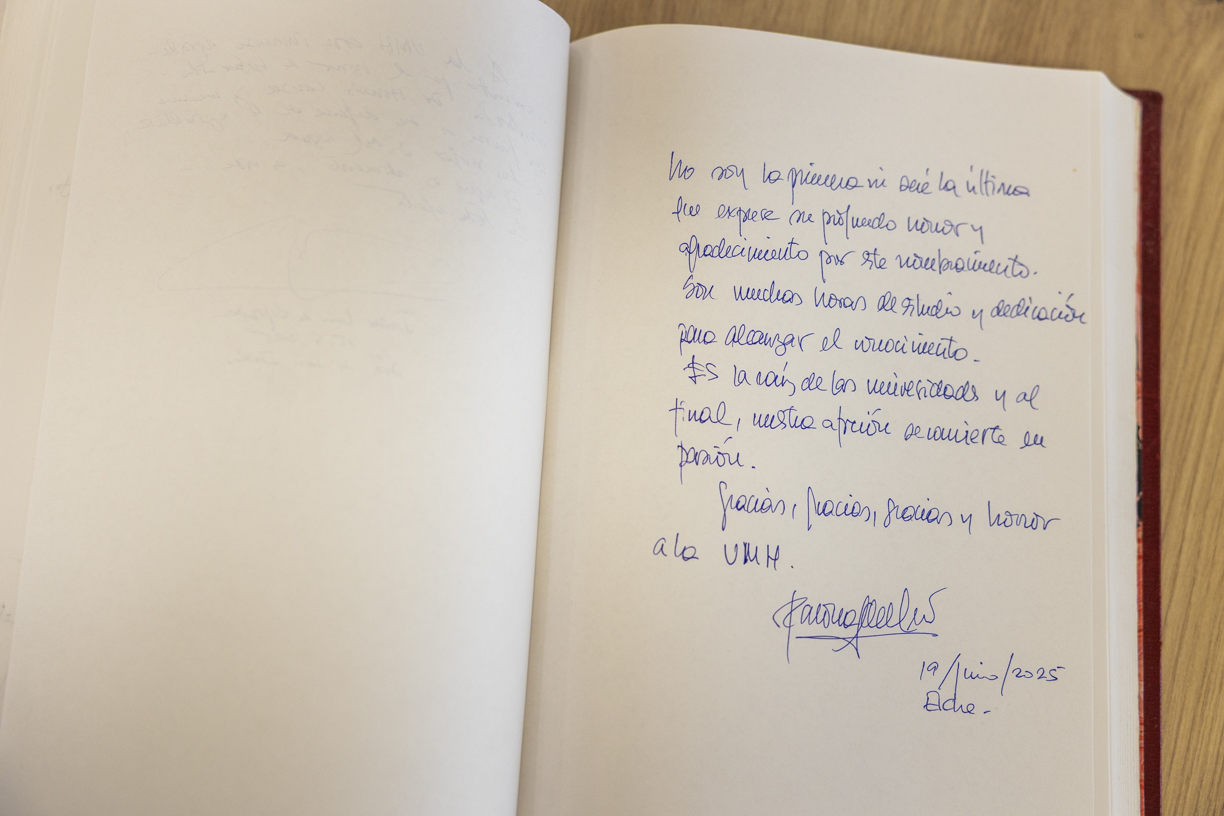 No soy la primera ni seré la última
que exprese su profundo honor y
agradecimiento por este nombramiento.
Son muchas horas de estudio y dedicación
para alcanzar el conocimiento.
ES la raíz de las universidades y al
final, nuestra afición se convierte en
pasión.
Gracias, gracias, gracias y honor
a la UMH.
19/Junio/2025
Elche.